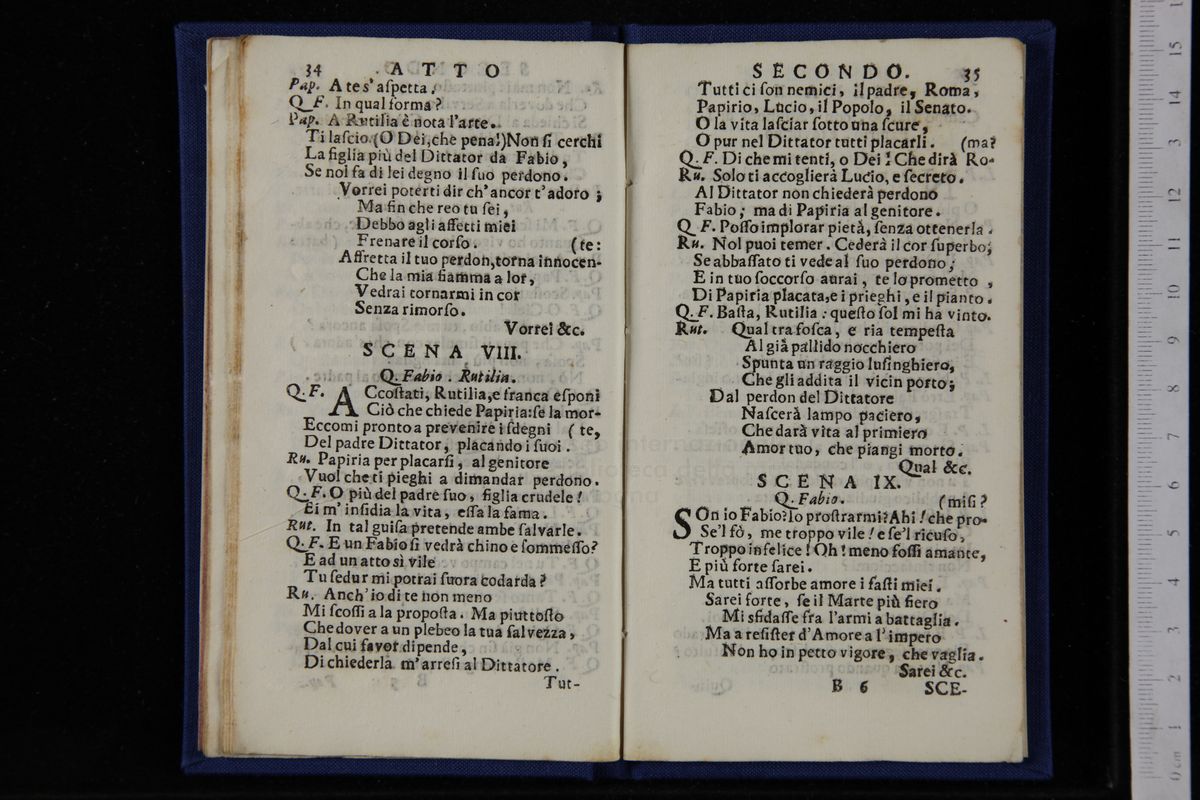 34 ATTO
Pap. A te s' aſpetta.
Q. F. In qual forma?
Pap. A Rutilia è nota l'arte.
Ti laſcio (O Dei, che pena!) Non ſi cerchi
La figlia più del Dittator da Fabio,
Se nol fa di lei degno il ſuo perdono.
Vorrei poterti dir ch' ancor t' adoro;
Ma fin che reo tu ſei,
Debbo agli affetti miei
Frenare il corſo. (te:
Affretta il tuo perdon, torna innocen-
Che la mia fiamma a lor,
Vedrai tornarmi in cor
Senza rimorſo.
Vorrei &c.
SCENA VIII.
Q. Fabio. Rutilia.
Q. F. ACcoſtati, Rutilia, e franca eſponi
Ciò che chiede Papiria: ſe la mor-
Eccomi pronto a prevenire i ſdegni (te,
Del padre Dittator, placando i ſuoi.
Ru. Papiria per placarſi, al genitore
Vuol che ti pieghi a dimandar perdono.
Q. F. O più del padre ſuo, figlia crudele!
Ei m' inſidia la vita, eſſa la fama.
Rut. In tal guiſa pretende ambe ſalvarle.
Q. F. E un Fabio ſi vedrà chino e ſommeſſo?
E ad un atto sì vile
Tu ſedur mi potrai ſuora codarda?
Ru. Anch' io di te non meno
Mi ſcoſſi a la propoſta. Ma piuttoſto
Che dover a un plebeo la tua ſalvezza,
Dal cui favor dipende,
Di chiederla m' arreſi al Dittatore.
Tut-
SECONDO. 35
Tutti ci ſon nemici, il padre, Roma,
Papirio, Lucio, il Popolo, il Senato.
O la vita laſciar ſotto una ſcure,
O pur nel Dittator tutti placarli. (ma?
Q. F. Di che mi tenti, o Dei! Che dirà Ro-
Ru. Solo ti accoglierà Lucio, e ſecreto.
Al Dittator non chiederà perdono
Fabio; ma di Papiria al genitore.
Q F. Poſſo implorar pietà, ſenza ottenerla.
Ru. Nol puoi temer. Cederà il cor ſuperbo;
Se abbaſſato ti vede al ſuo perdono;
E in tuo ſoccorſo aurai, te lo prometto,
Di Papiria placata, e i prieghi, e il pianto.
Q. F. Baſta, Rutilia: queſto ſol mi ha vinto.
Rut. Qual tra foſca, e ria tempeſta
Al già pallido nocchiero
Spunta un raggio luſinghiero,
Che gli addita il vicin porto;
Dal perdon del Dittatore
Naſcerà lampo paciero,
Che darà vita al primiero
Amor tuo, che piangi morto.
Qual &c.
SCENA IX.
Q. Fabio. (miſi?
SOn io Fabio? Io proſtrarmi? Ahi! che pro-
Se'l fò, me troppo vile! e ſe'l ricuſo,
Troppo infelice! Oh! meno foſſi amante,
E più forte ſarei.
Ma tutti aſſorbe amore i faſti miei.
Sarei forte, ſe il Marte più fiero
Mi sfidaſſe fra l'armi a battaglia.
Ma a reſiſter d'Amore a l' impero
Non ho in petto vigore, che vaglia.
Sarei &c.
B 6 SCE-